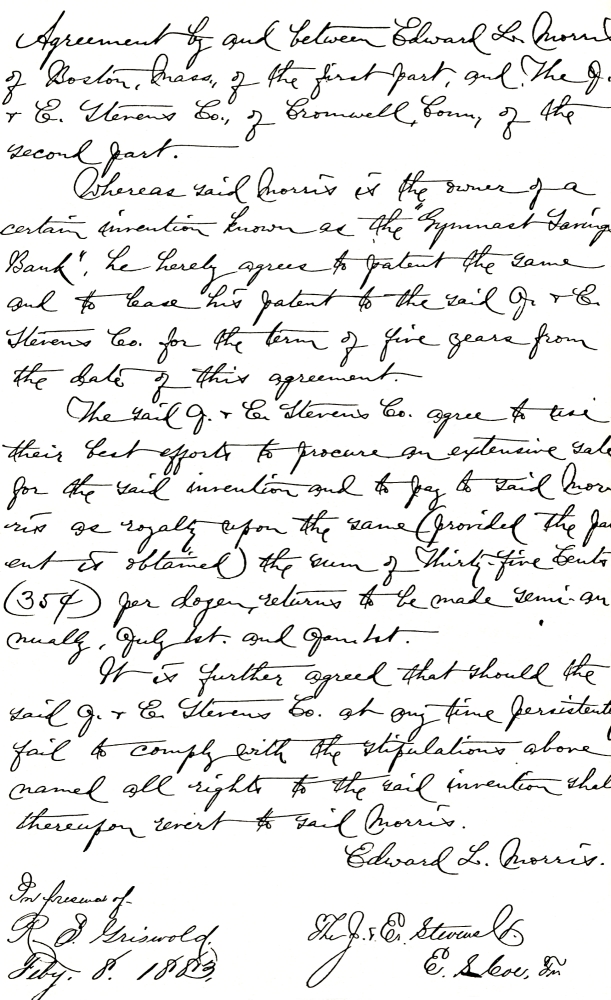 Agreement by and between Edward L. Morris
of Boston, Mass., of the first part, and The J.
& E. Stevens Co., of Cromwell, Conn, of the
second part.
Whereas said Morris is the owner of a
certain invention known as the "Gymnast Saving
Bank", he hereby agrees to patent the same
and to lease his patent to the said J. & E.
Stevens Co. for the term of five years from
the date of this agreement.
The said J. & E. Stevens Co. agree to use
their best efforts to procure an extensive sale
for the said invention and to pay to said Mor-
ris as royalty upon the same (provided the pat
ent is obtained) the sum of Thirty-five Cents
(35¢) per dozen, returns to be made semi-an
nually, July 1st. and Jan. 1st.
It is further agreed that should the
said J. & E. Stevens Co. at any time persistent
fail to comply with the stipulations above
named all rights to the said invention shal
thereupon revert to said Morris.
Edward L. Morris.
In presence of-
R. B. Griswold.
Feby. 8. 1883.
The J. & E. Stevens Co
E. S. Coe, Tr